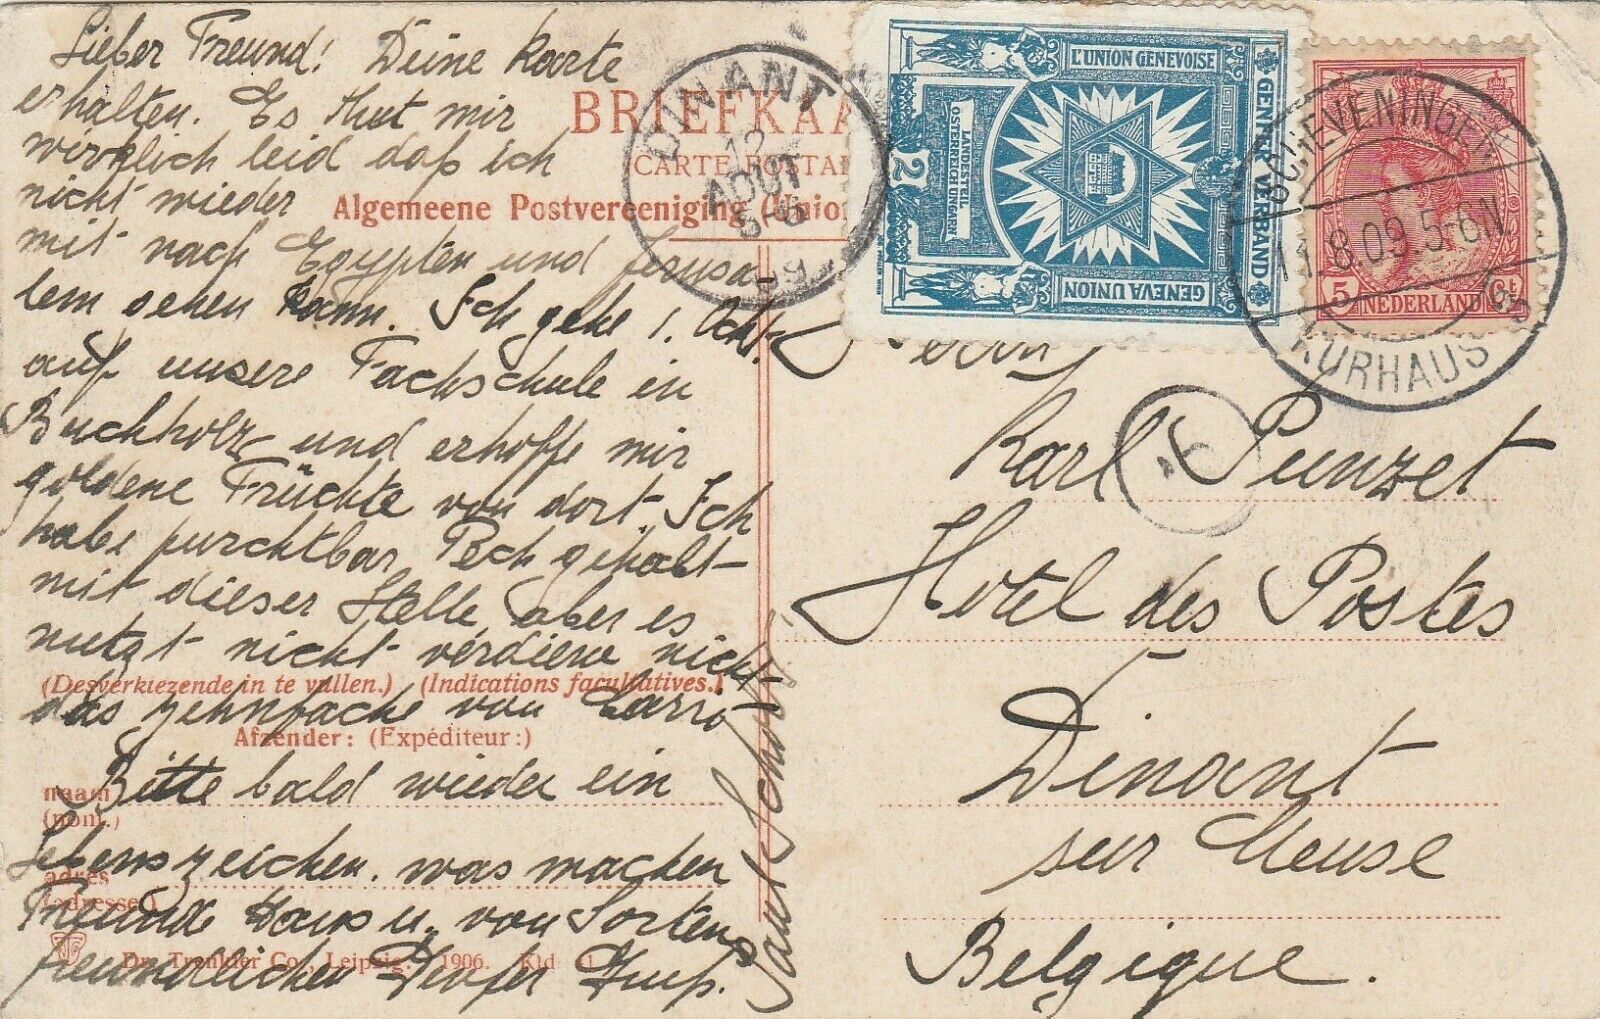 Lieber Freund! Deine Karte
erhalten. Es thut mir
wirklich leid daß ich
nicht wieder
mit nach Egypten und Jerusa-
lem sehen kann. Ich gehe 1. Oct.
auf unsere Fachschule in
Buchholz und erhoffe mir
goldene Früchte von dort. Ich
habe furchtbar Pech gehabt
mit dieser Stelle, aber es
nutzt nicht verdiene nicht
das zehnfache von
Bitte bald wieder ein
Lebenszeichen. was machen
Freunde Haus u. von
freundlichen Genfer Gruß.
BRIEFKAA
CARTE POSTAL
Algemeene Postvereeniging (Union
(Desverkiezende in te vullen.) (Indications facultatives.)
Afzender: (Expéditeur:)
naam
(nom.)
adres
(adresse)
Dr. Trenkler Co., Leipzig. 1906. Kld
DINANT
12
AOUT
5-6
09
L'UNION GENEVOISE
GENFER VERBAND
GENEVA UNION
LANDESTEIL
OSTERREICH UNGARN
2
2
SCHEVENINGEN
11.8.09.5-6N
KURHAUS
5 NEDERLAND Ct
Karl Punzet
Hotel des Postes
Dinant
sur Meuse
Belgique.